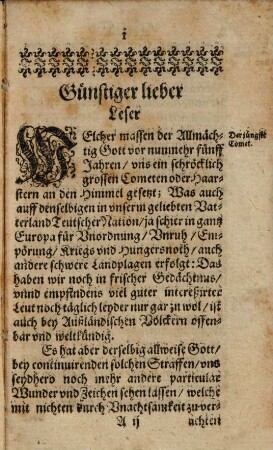 i
Günstiger lieber
Leser
WElcher massen der Allmäch-
tig Gott vor nunmehr fünff
Jahren / vns ein schröcklich
grossen Cometen oder Haar-
stern an den Himmel gesetzt; Was auch
auff denselbigen in vnserm geliebten Vat-
terland Teutscher Nation / ja schier in gantz
Europa für Vnordnung / Vnruh / Em-
pörung / Kriegs vnd Hungersnoth / auch
andere schwere Landplagen erfolgt: Das
haben wir noch in frischer Gedächtnus /
vnnd empfindens viel guter interessirter
Leut noch täglich leyder nur gar zu wol / ist
auch bey Außländischen Völckern offen-
bar vnd weltkündig.
Es hat aber derselbig allweise Gott /
bey continuirenden solchen Straffen / vns
seydhero noch mehr andere particular
Wunder vnd Zeichen sehen lassen / welche
mit nichten durch Vnachtsamkeit zu ver-
A ij achten
Der jüngste
Comet.